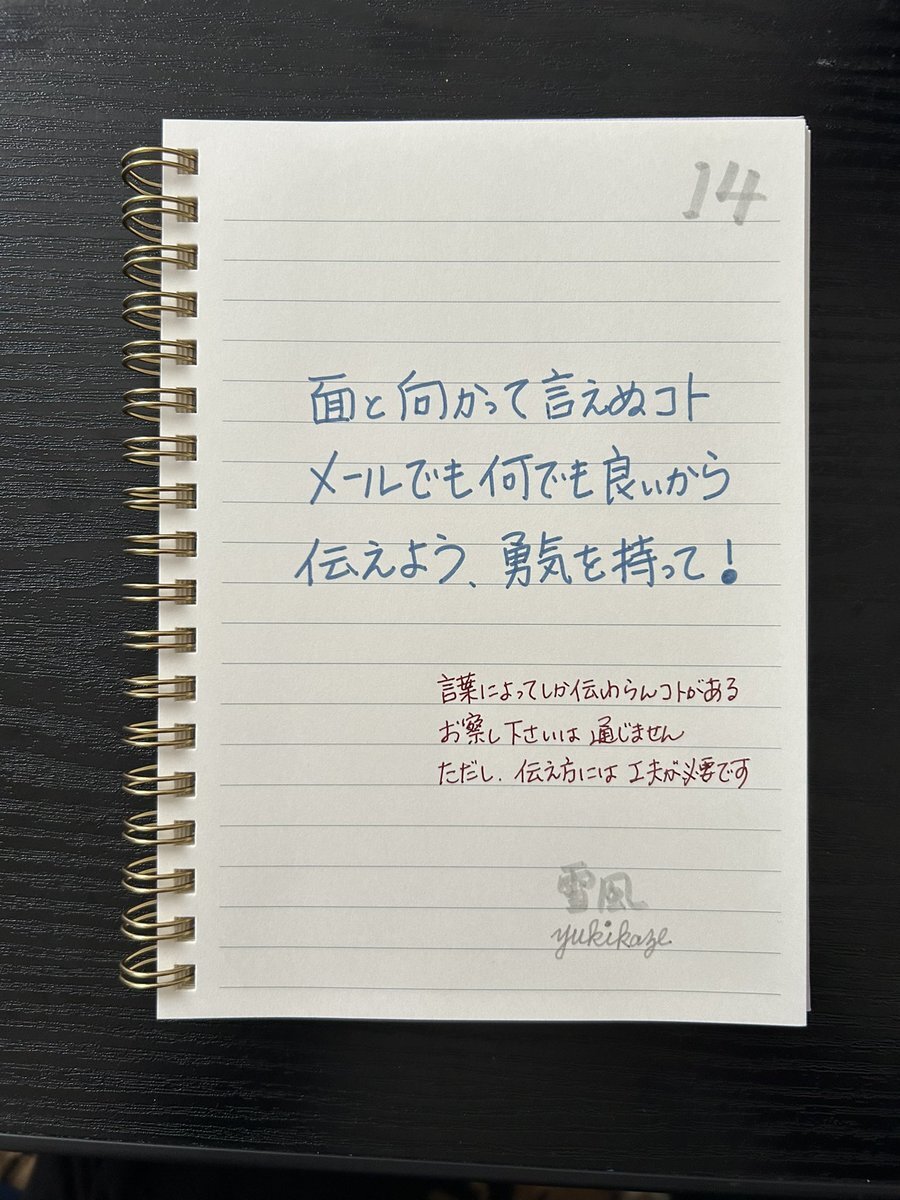 14
面と向かって言えぬコト
メールでも何でも良いから
伝えよう、勇気を持って!
言葉によってしか伝わらんコトがある
お察し下さいは通じません
ただし、伝え方には工夫が必要です
雪風
yukikaze